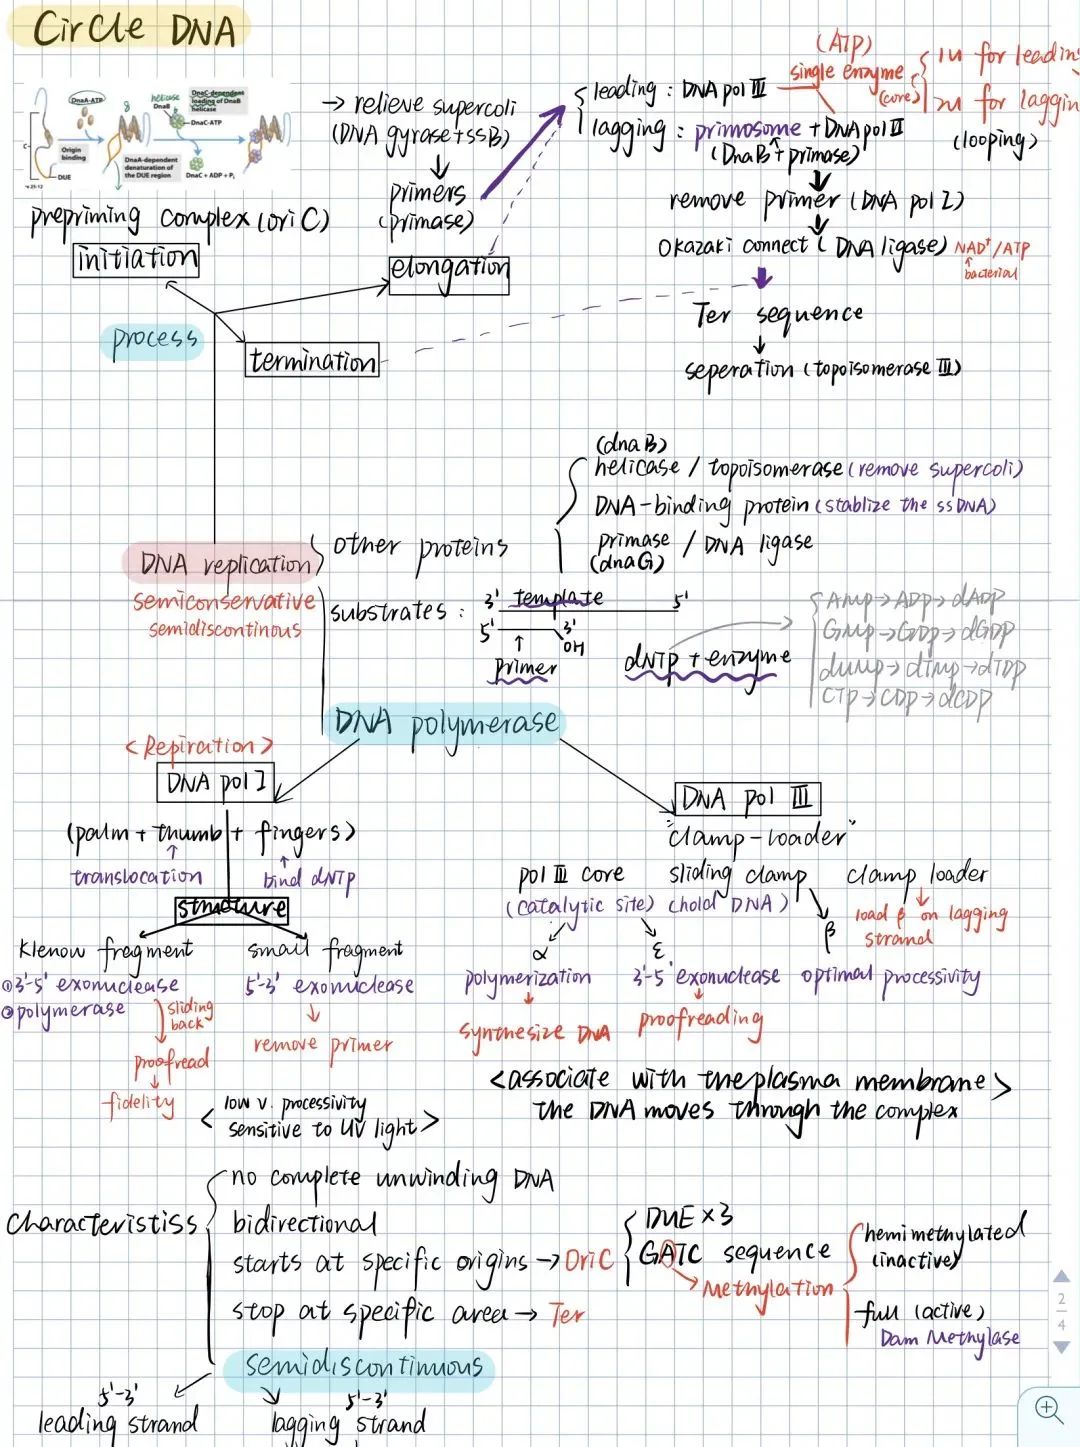 Circle DNA
DnaA-ATP
8
helicase
DnaB
DnaC-dependent
loading of DnaB
helicase
DnaC-ATP
Origin
binding
DUE
DnaA-dependent
denaturation of
the DUE region
DnaC + ADP + Pi
prepriming complex (ori C)
initiation
→ relieve supercoli
(DNA gyrase+SSB)
primers
(primase)
elongation
process
termination
leading : DNA pol III
lagging : primosome + DNA pol III
(DnaB + primase)
(ATP)
single enzyme
(core)
1u for leadin
2u for laggin
(looping)
remove primer (DNA pol I)
Okazaki connect ( DNA ligase) NAD+/ATP
bacterial
Ter sequence
seperation (topoisomerase III)
(dnaB)
helicase / topoisomerase (remove supercoli)
DNA-binding protein (stablize the ssDNA)
primase / DNA ligase
(dnaG)
DNA replication
other proteins
semiconservative
semidiscontinous
substrates :
3' template 5'
5' 3'
OH
primer
dNTP + enzyme
AMP→ADP→dADP
GMP→GDP→dGDP
dUMP→dTMP→dTDP
CTP→CDP→dCDP
DNA polymerase
<Repiration>
DNA pol I
(palm + thumb + fingers)
translocation
bind dNTP
structure
klenow fragment
① 3'-5' exonuclease
② polymerase
sliding
back
proofread
fidelity
small fragment
5'-3' exonuclease
remove primer
< low v. processivity
sensitive to UV light >
DNA pol III
"clamp-loader"
pol III core
(catalytic site)
sliding clamp
(hold DNA)
clamp loader
load β on lagging
strand
α
polymerization
synthesize DNA
ε
3'-5' exonuclease
proofreading
β
optimal processivity
<associate with the plasma membrane>
the DNA moves through the complex
characteristiss
no complete unwinding DNA
bidirectional
starts at specific origins → OriC
stop at specific area → Ter
semidiscontinuous
DUE ×3
GATC sequence
Methylation
hemimethylated
(inactive)
full (active)
Dam Methylase
5'-3'
leading strand
5'-3'
lagging strand
2
4